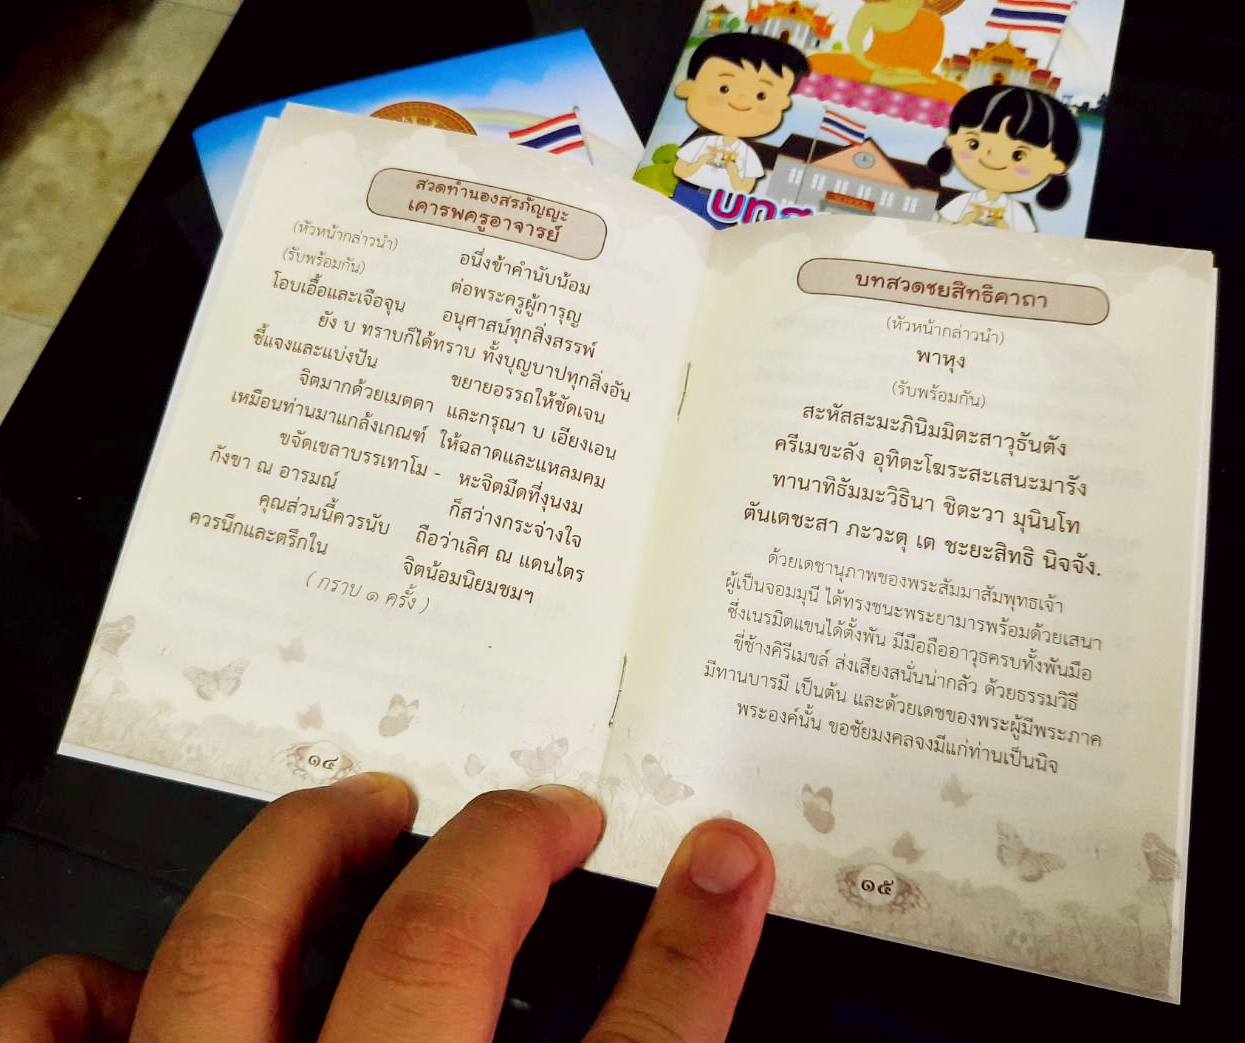 สวดทำนองสรภัญญะ
เคารพครูอาจารย์
(หัวหน้ากล่าวนำ) อนึ่งข้าคำนับน้อม
(รับพร้อมกัน) ต่อพระครูผู้การุญ
โอบเอื้อและเจือจุน อนุศาสน์ทุกสิ่งสรรพ์
ยัง บ ทราบก็ได้ทราบ ทั้งบุญบาปทุกสิ่งอัน
ชี้แจงและแบ่งปัน ขยายอรรถให้ชัดเจน
จิตมากด้วยเมตตา และกรุณา บ เอียงเอน
เหมือนท่านมาแกล้งเกณฑ์ ให้ฉลาดและแหลมคม
ขจัดเขลาบรรเทาโม - หะจิตมืดที่งุนงม
กังขา ณ อารมณ์ ก็สว่างกระจ่างใจ
คุณส่วนนี้ควรนับ ถือว่าเลิศ ณ แดนไตร
ควรนึกและตรึกใน จิตน้อมนิยมชมฯ
( กราบ ๑ ครั้ง )
๑๔
บทสวดชยสิทธิคาถา
(หัวหน้ากล่าวนำ)
พาหุง
(รับพร้อมกัน)
สะหัสสะมะภินิมมิตะสาวุธันตัง
ครีเมขะลัง อุทิตะโฆระสะเสนะมารัง
ทานาทิธัมมะวิธินา ชิตะวา มุนินโท
ตันเตชะสา ภะวะตุ เต ชะยะสิทธิ นิจจัง.
ด้วยเดชานุภาพของพระสัมมาสัมพุทธเจ้า
ผู้เป็นจอมมุนี ได้ทรงชนะพระยามารพร้อมด้วยเสนา
ซึ่งเนรมิตแขนได้ตั้งพัน มีมือถืออาวุธครบทั้งพันมือ
ขี่ช้างคิรีเมขล์ ส่งเสียงสนั่นน่ากลัว ด้วยธรรมวิธี
มีทานบารมี เป็นต้น และด้วยเดชของพระผู้มีพระภาค
พระองค์นั้น ขอชัยมงคลจงมีแก่ท่านเป็นนิจ
๑๕
SCHOOL